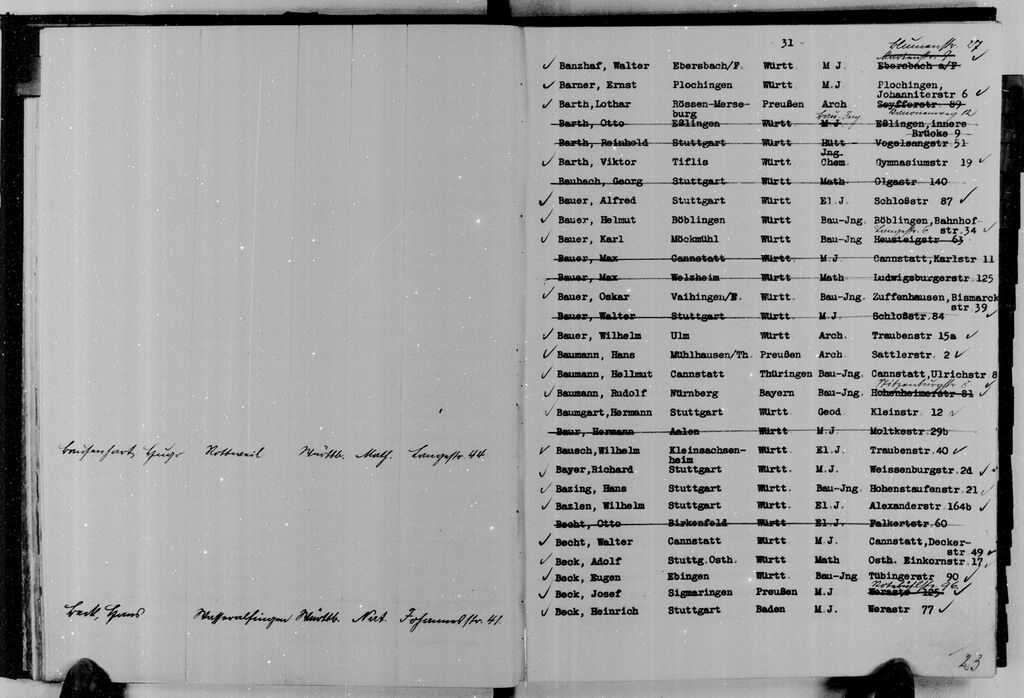 Bausenhart, Hugo Rottweil Württb. Math. Langestr. 44.
Beck, Hans Wasseralfingen Württb. Nat. Johannesstr. 41.
31
Blumenstr. 27
Banzhaf, Walter Ebersbach/F. Württ M.J. Ebersbach a/F
Barner, Ernst Plochingen Württ M.J Plochingen,
Johanniterstr 6
Barth, Lothar Rössen-Merse- Preußen Arch Seyfferstr 89
burg Bau-Jng
Barth, Otto Eßlingen Württ M.J. Eßlingen, innere
Brücke 9
Barth, Reinhold Stuttgart Württ Hütt- Vogelsangstr 51
Jng.
Barth, Viktor Tiflis Württ Chem. Gymnasiumstr 19
Baubach, Georg Stuttgart Württ Math. Olgastr 140
Bauer, Alfred Stuttgart Württ El.J. Schloßstr 87
Bauer, Helmut Böblingen Württ Bau-Jng. Böblingen, Bahnhof-
Langestr. 6 str.34
Bauer, Karl Möckmühl Württ Bau-Jng Heusteigstr 63
Bauer, Max Cannstatt Württ M.J. Cannstatt, Karlstr 11
Bauer, Max Welzheim Württ Math Ludwigsburgerstr 125
Bauer, Oskar Vaihingen/E. Württ. Bau-Jng. Zuffenhausen, Bismarck
str 39
Bauer, Walter Stuttgart Württ M.J. Schloßstr.84
Bauer, Wilhelm Ulm Württ Arch. Traubenstr 15a
Baumann, Hans Mühlhausen/Th. Preußen Arch. Sattlerstr. 2
Baumann, Hellmut Cannstatt Thüringen Bau-Jng. Cannstatt, Ulrichstr 8
Baumann, Rudolf Nürnberg Bayern Bau-Jng. Hohenheimerstr 81
Baumgart, Hermann Stuttgart Württ Geod Kleinstr. 12
Baur, Hermann Aalen Württ M.J. Moltkestr.29b
Bausch, Wilhelm Kleinsachsen- Württ El.J. Traubenstr.40
heim
Bayer, Richard Stuttgart Württ. M.J. Weissenburgstr.2d
Bazing, Hans Stuttgart Württ Bau-Jng Hohenstaufenstr.21
Bazlen, Wilhelm Stuttgart Württ El.J. Alexanderstr 164b
Becht, Otto Birkenfeld Württ El.J. Falkertstr.60
Becht, Walter Cannstatt Württ M.J. Cannstatt, Decker-
str 49
Beck, Adolf Stuttg.Osth. Württ Math Osth. Einkornstr.17
Beck, Eugen Ebingen Württ Bau-Jng Tübingerstr 90
Rotebühlstr. 96
Beck, Josef Sigmaringen Preußen M.J. Werastr 125
Beck, Heinrich Stuttgart Baden M.J. Werastr 77
23